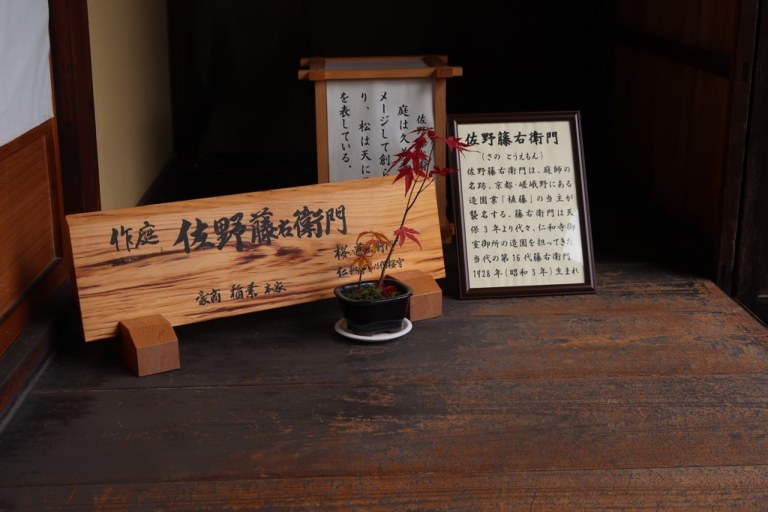 作庭 佐野藤右衛門
桜
仁
豪商 稲葉 本家
庭は久
メージして創
り、松は天に
を表している。
佐野藤右衛門
(さの とうえもん)
佐野藤右衛門は、庭師の
名跡。京都・嵯峨野にある
造園業「植藤」の当主が
襲名する。藤右衛門は天
保3年より代々、仁和寺御
室御所の造園を担ってきた
当代の第16代藤右衛門
1928年(昭和3年)生まれ